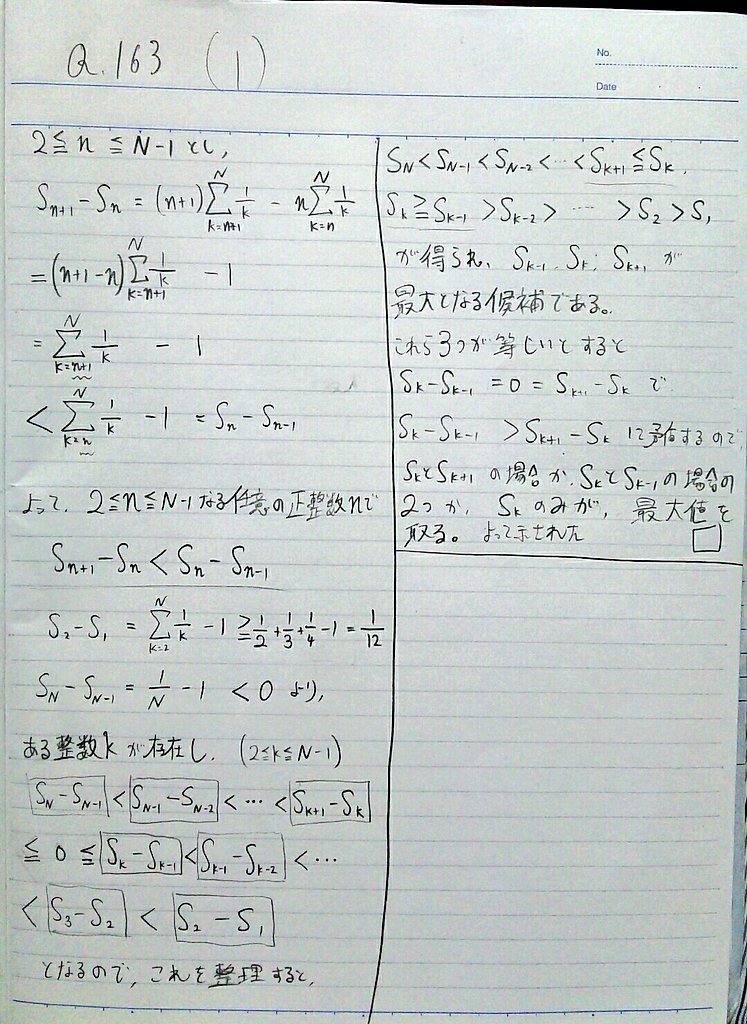 Q.163 (1)
No.
Date
2≦n≦N-1とし,
S_{n+1}-S_n = (n+1)∑_{k=n+1}^{N} 1/k - n∑_{k=n}^{N} 1/k
= (n+1-n)∑_{k=n+1}^{N} 1/k - 1
= ∑_{k=n+1}^{N} 1/k - 1
< ∑_{k=n}^{N} 1/k - 1 = S_n - S_{n-1}
よって、2≦n≦N-1なる任意の正整数nで
S_{n+1}-S_n < S_n-S_{n-1}
S_2-S_1 = ∑_{k=2}^{N} 1/k - 1 ≧ 1/2+1/3+1/4-1 = 1/12
S_N-S_{N-1} = 1/N - 1 < 0 より,
ある整数kが存在し. (2≦k≦N-1)
S_N-S_{N-1} < S_{N-1}-S_{N-2} < ⋯ < S_{k+1}-S_k
≦ 0 ≦ S_k-S_{k-1} < S_{k-1}-S_{k-2} < ⋯
< S_3-S_2 < S_2-S_1
となるので, これを整理すると,
S_N<S_{N-1}<S_{N-2}<⋯<S_{k+1}≦S_k.
S_k≧S_{k-1}>S_{k-2}> ⋯ >S_2>S_1
が得られ、S_{k-1}, S_k, S_{k+1} が
最大となる候補である。
これら3つが等しいとすると
S_k-S_{k-1} = 0 = S_{k+1}-S_k で
S_k-S_{k-1} > S_{k+1}-S_k に矛盾するので,
S_kとS_{k+1} の場合か, S_kとS_{k-1}の場合の
2つか, S_k のみが, 最大値を
取る。よって示された □